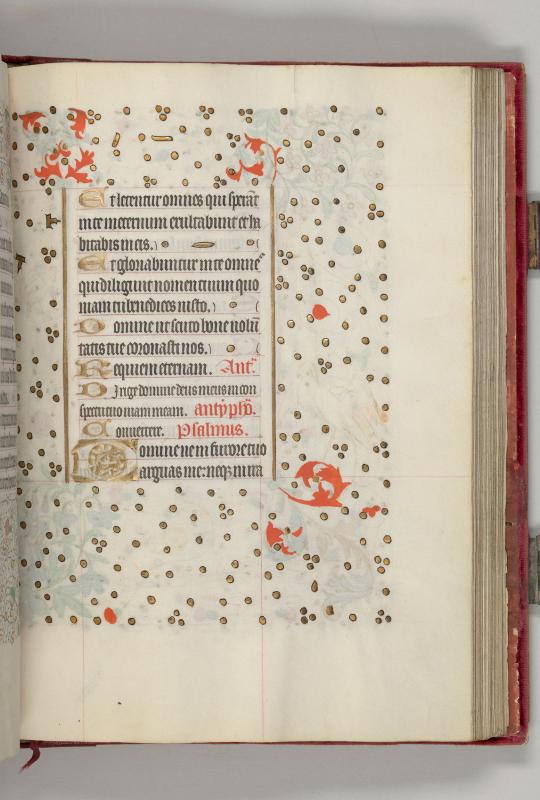 Et letentur omnes qui sperāt
in te in eternum exultabunt et ha
bitabis in eis.
Et gloriabuntur in te omnes
qui diligunt nomen tuum quo
niam tu benedices iusto.
Domine ut scuto bone uolūt
tatis tue coronasti nos.
Requiem eternam. Ant.
Dirige domine deus meus in con
spectu tuo uiam meam. antyphō.
Conuertere. Psalmus.
Domine ne in furore tuo
arguas me: neqz in ira